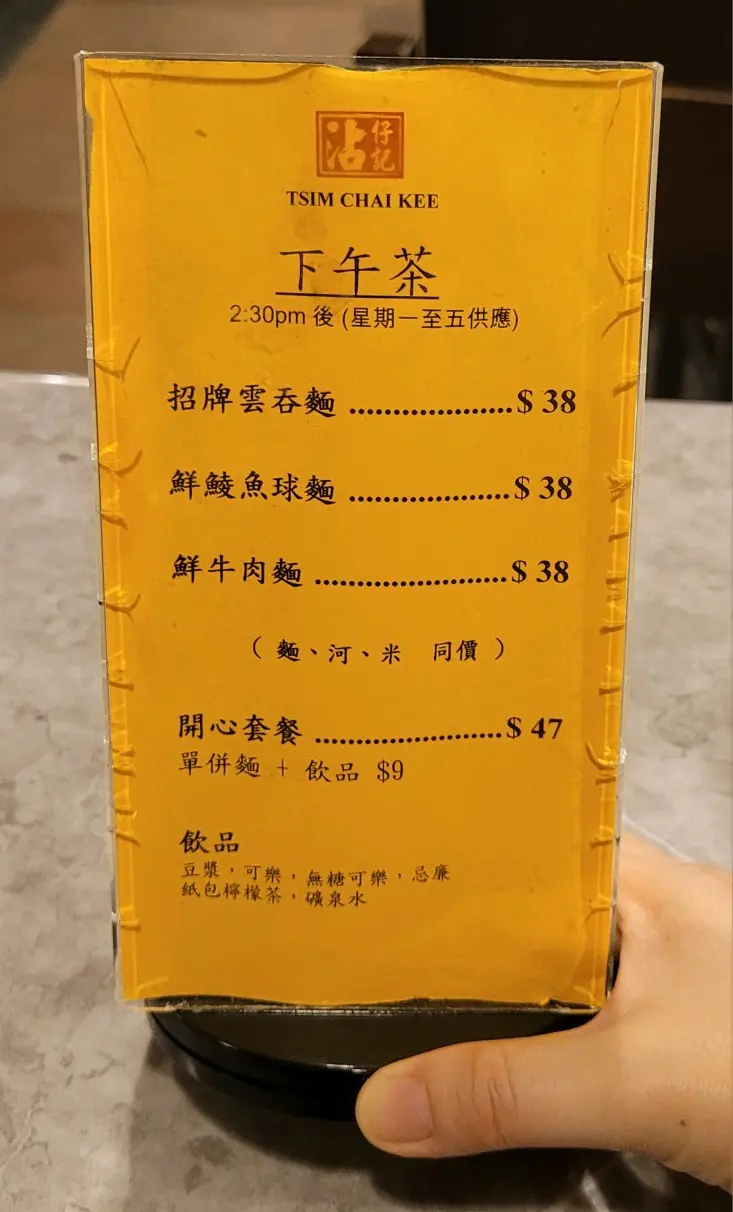 沾仔記
TSIM CHAI KEE
下午茶
2:30pm 後 (星期一至五供應)
招牌雲吞麵 ...................$ 38
鮮鯪魚球麵 ...................$ 38
鮮牛肉麵 .......................$ 38
( 麵、河、米 同價 )
開心套餐 ......................$ 47
單併麵 + 飲品 $9
飲品
豆漿，可樂，無糖可樂，忌廉
紙包檸檬茶，礦泉水